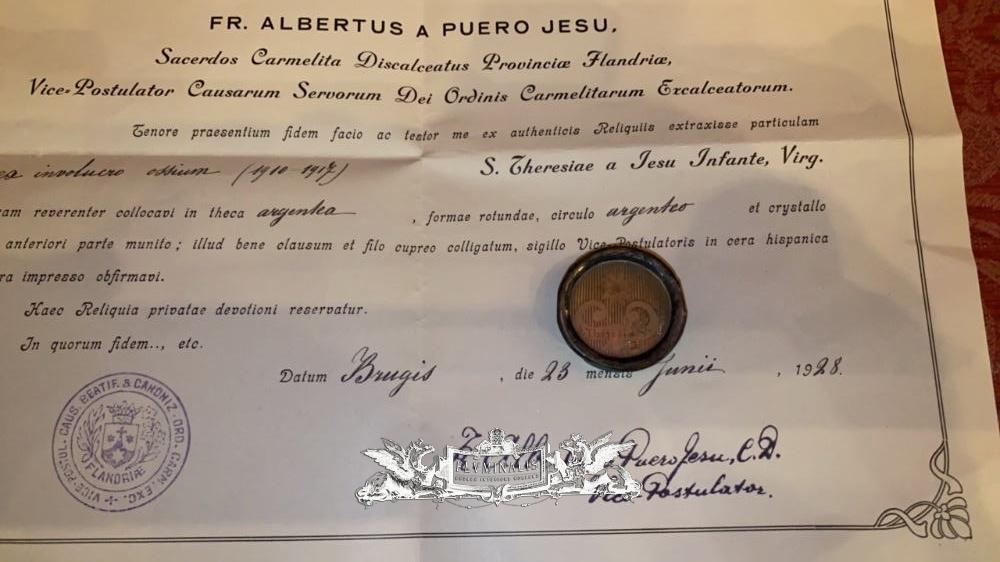 FR. ALBERTUS A PUERO JESU,
Sacerdos Carmelita Discalceatus Provinciæ Flandriæ,
Vice-Postulator Causarum Servorum Dei Ordinis Carmelitarum Excalceatorum.
Tenore praesentium fidem facio ac testor me ex authenticis Reliquiis extraxisse particulam
ex involucro ossium (1910-1917) S. Theresiae a Iesu Infante, Virg.
am reverenter collocavi in theca argentea , formae rotundae, circulo argenteo et crystallo
anteriori parte munito; illud bene clausum et filo cupreo colligatum, sigillo Vice-Postulatoris in cera hispanica
ra impresso obfirmavi.
Haec Reliquia privatae devotioni reservatur.
In quorum fidem.., etc.
Datum Brugis , die 23 mensis Junii , 1928.
VICE-POSTUL. CAUS. BEATIF. & CANONIZ. ORD. CARM. EXC.
FLANDRIÆ
Puero Jesu, C.D.
Vice-Postulator.